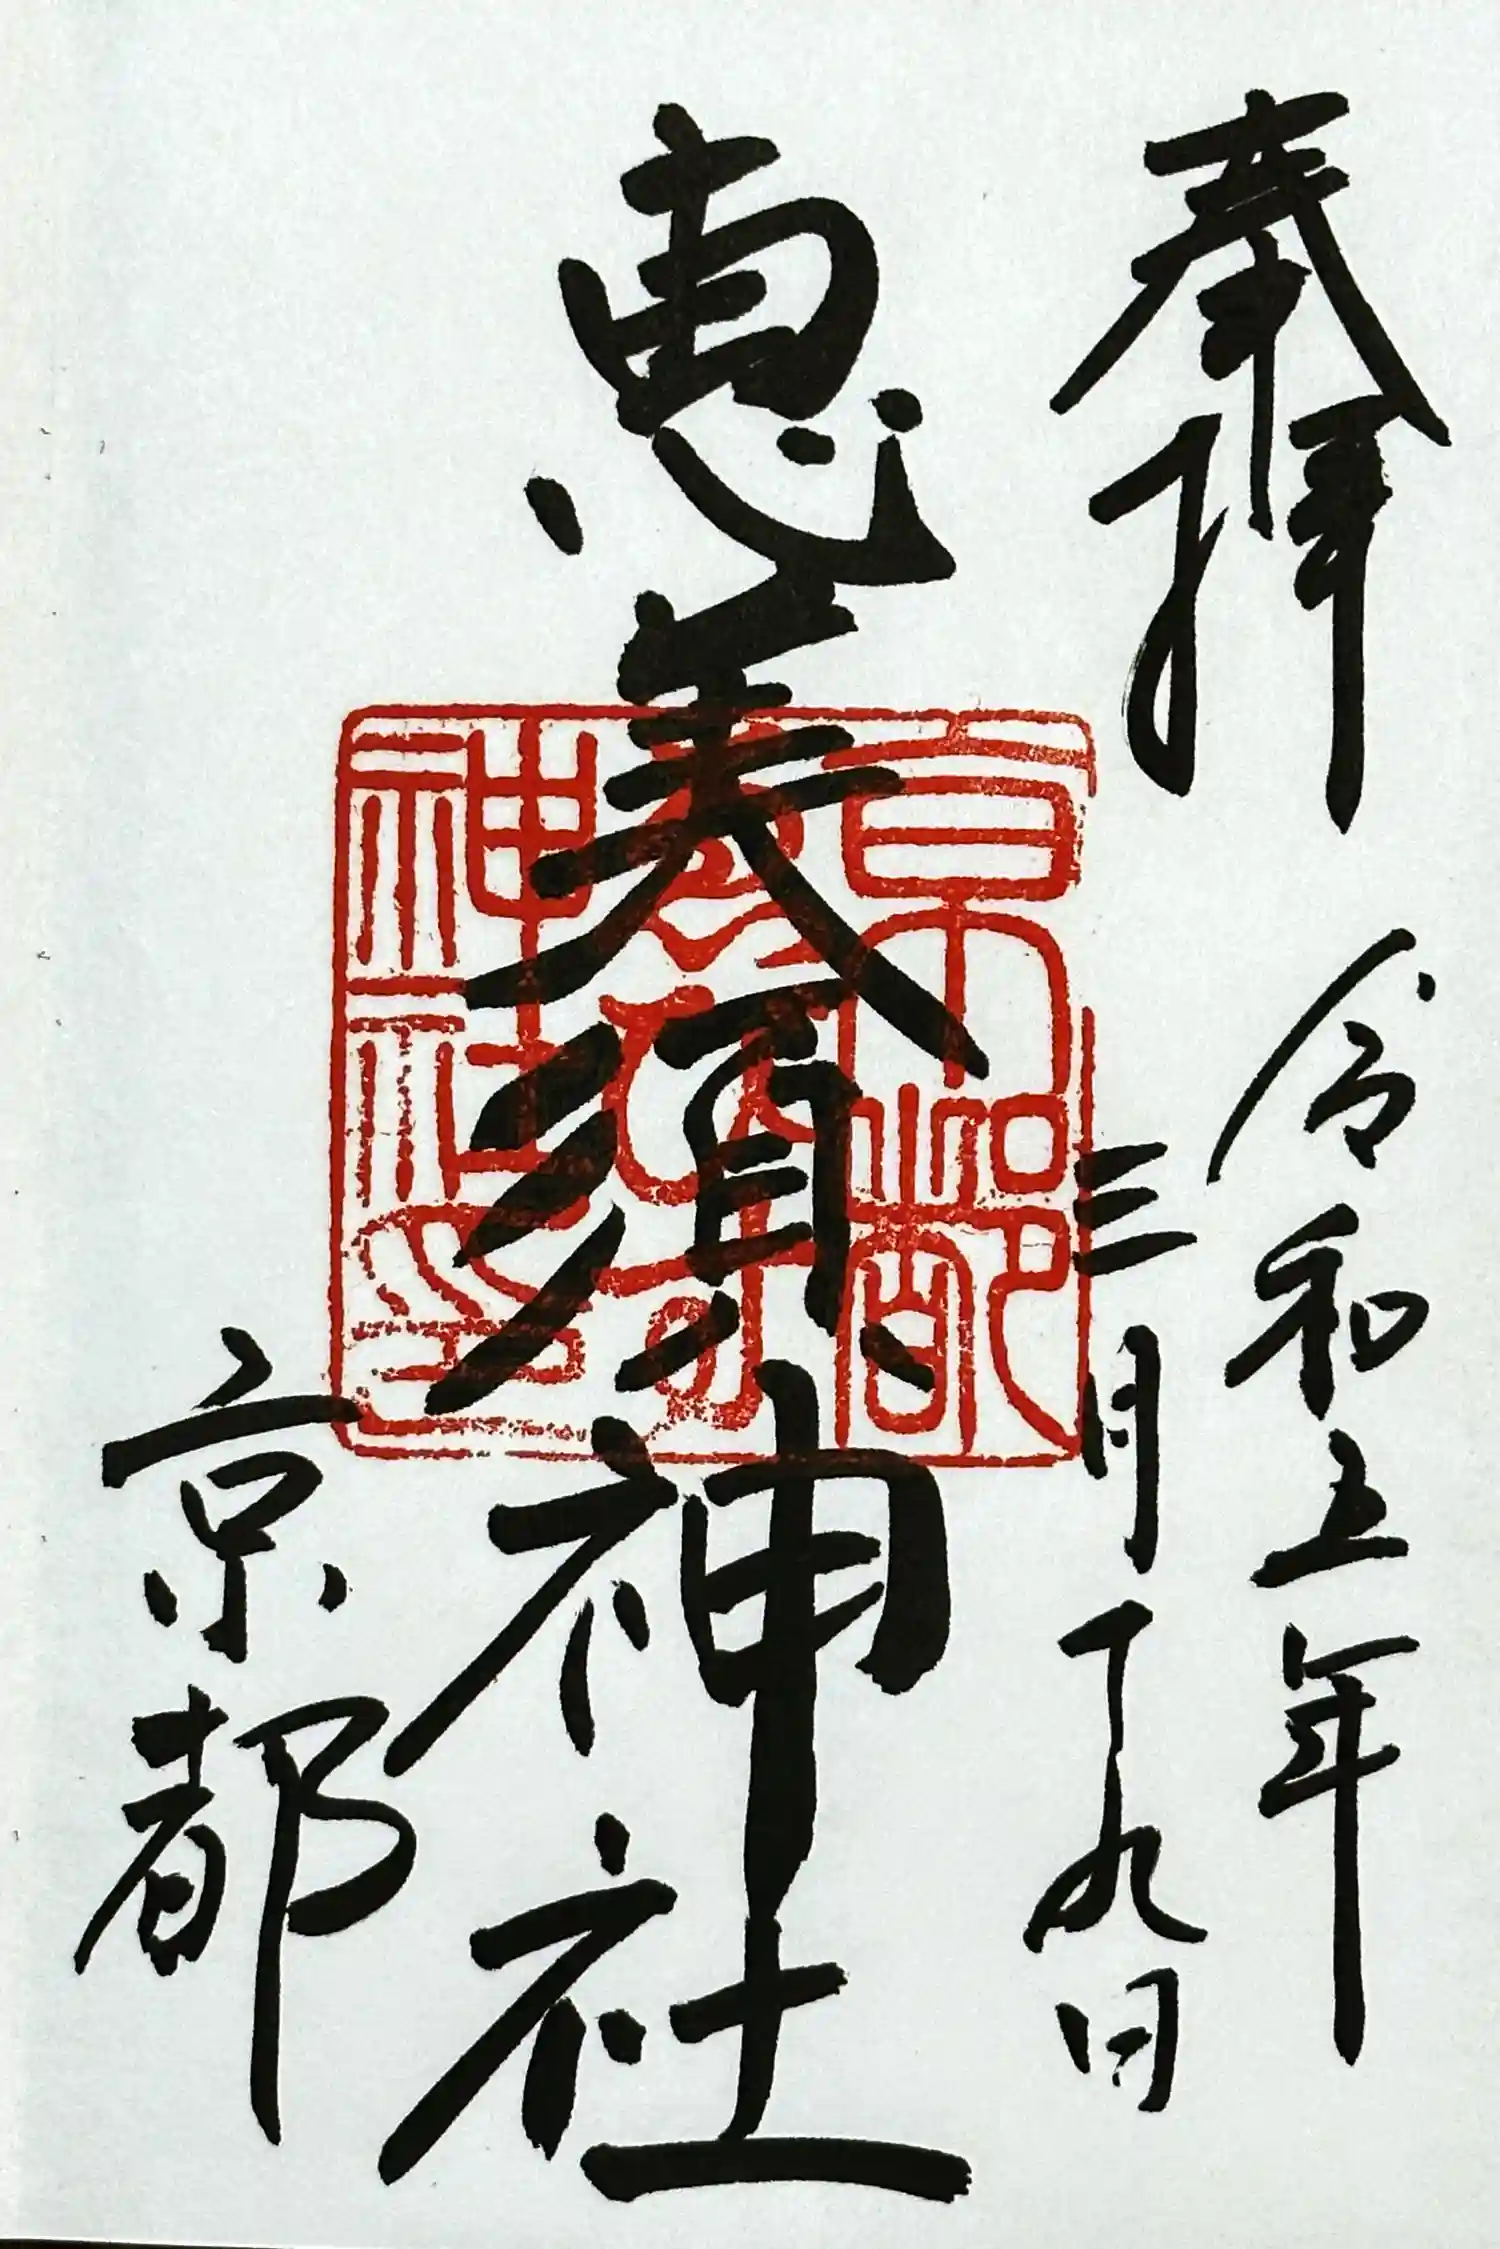 奉拝
令和五年
三月十九日
恵美須神社
京都
京都
神社印